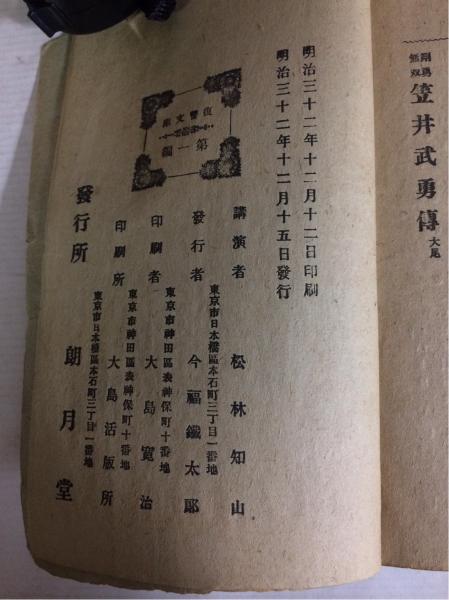 剛勇無双 笠井武勇傳 大尾
明治三十二年十二月十二日印刷
明治三十二年十二月十五日發行
復讐文庫
第一編
講演者 松林知山
東京市日本橋區本石町三丁目一番地
發行者 今福鐵太郎
東京市神田區表神保町十番地
印刷者 大島寛治
東京市神田區表神保町十番地
印刷所 大島活版所
東京市日本橋區本石町三丁目一番地
發行所 朗月堂